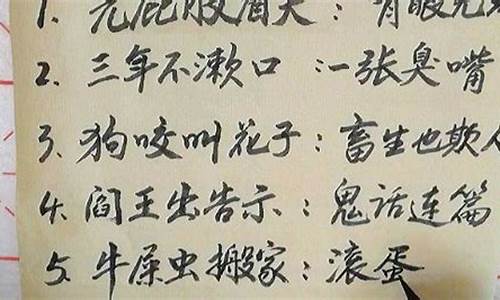 1. 光屁股
2. 三年不漱口：一张臭嘴
3. 狗咬叫花子：畜生也欺人
4. 阎王出告示：鬼话连篇
5. 牛屎虫搬家：滚蛋